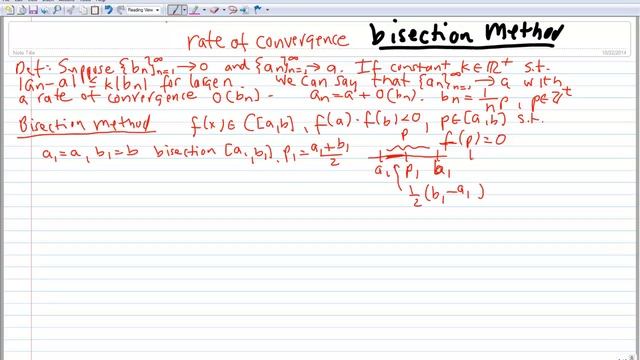 rate of convergence bisection Method
Note Title
10/22/2014
Def: Suppose {bn}∞n=1→0 and {an}∞n=1→a. If constant k∈ℝ+ s.t.
|an-a| ≤ k|bn| for large n. We can say that {an}∞n=1→a with
a rate of convergence O(bn). an=a+O(bn). bn=1/np, p∈ℤ+
Bisection method f(x)∈C[a,b], f(a)·f(b)<0, p∈[a,b] s.t.
f(p)=0
a1=a, b1=b bisection [a1,b1]. p1=a1+b1/2
p
a1 p1 b1
1/2(b1-a1)